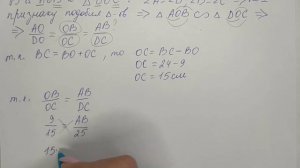 признаку подобия Δ-ов ⇒ ΔAOB ∽ ΔDOC ⇒
⇒ AO/DO = OB/OC = AB/DC
т.к. BC = BO + OC, то OC = BC − BO
OC = 24 − 9
OC = 15 см
т.к. OB/OC = AB/DC
9/15 = AB/25
15